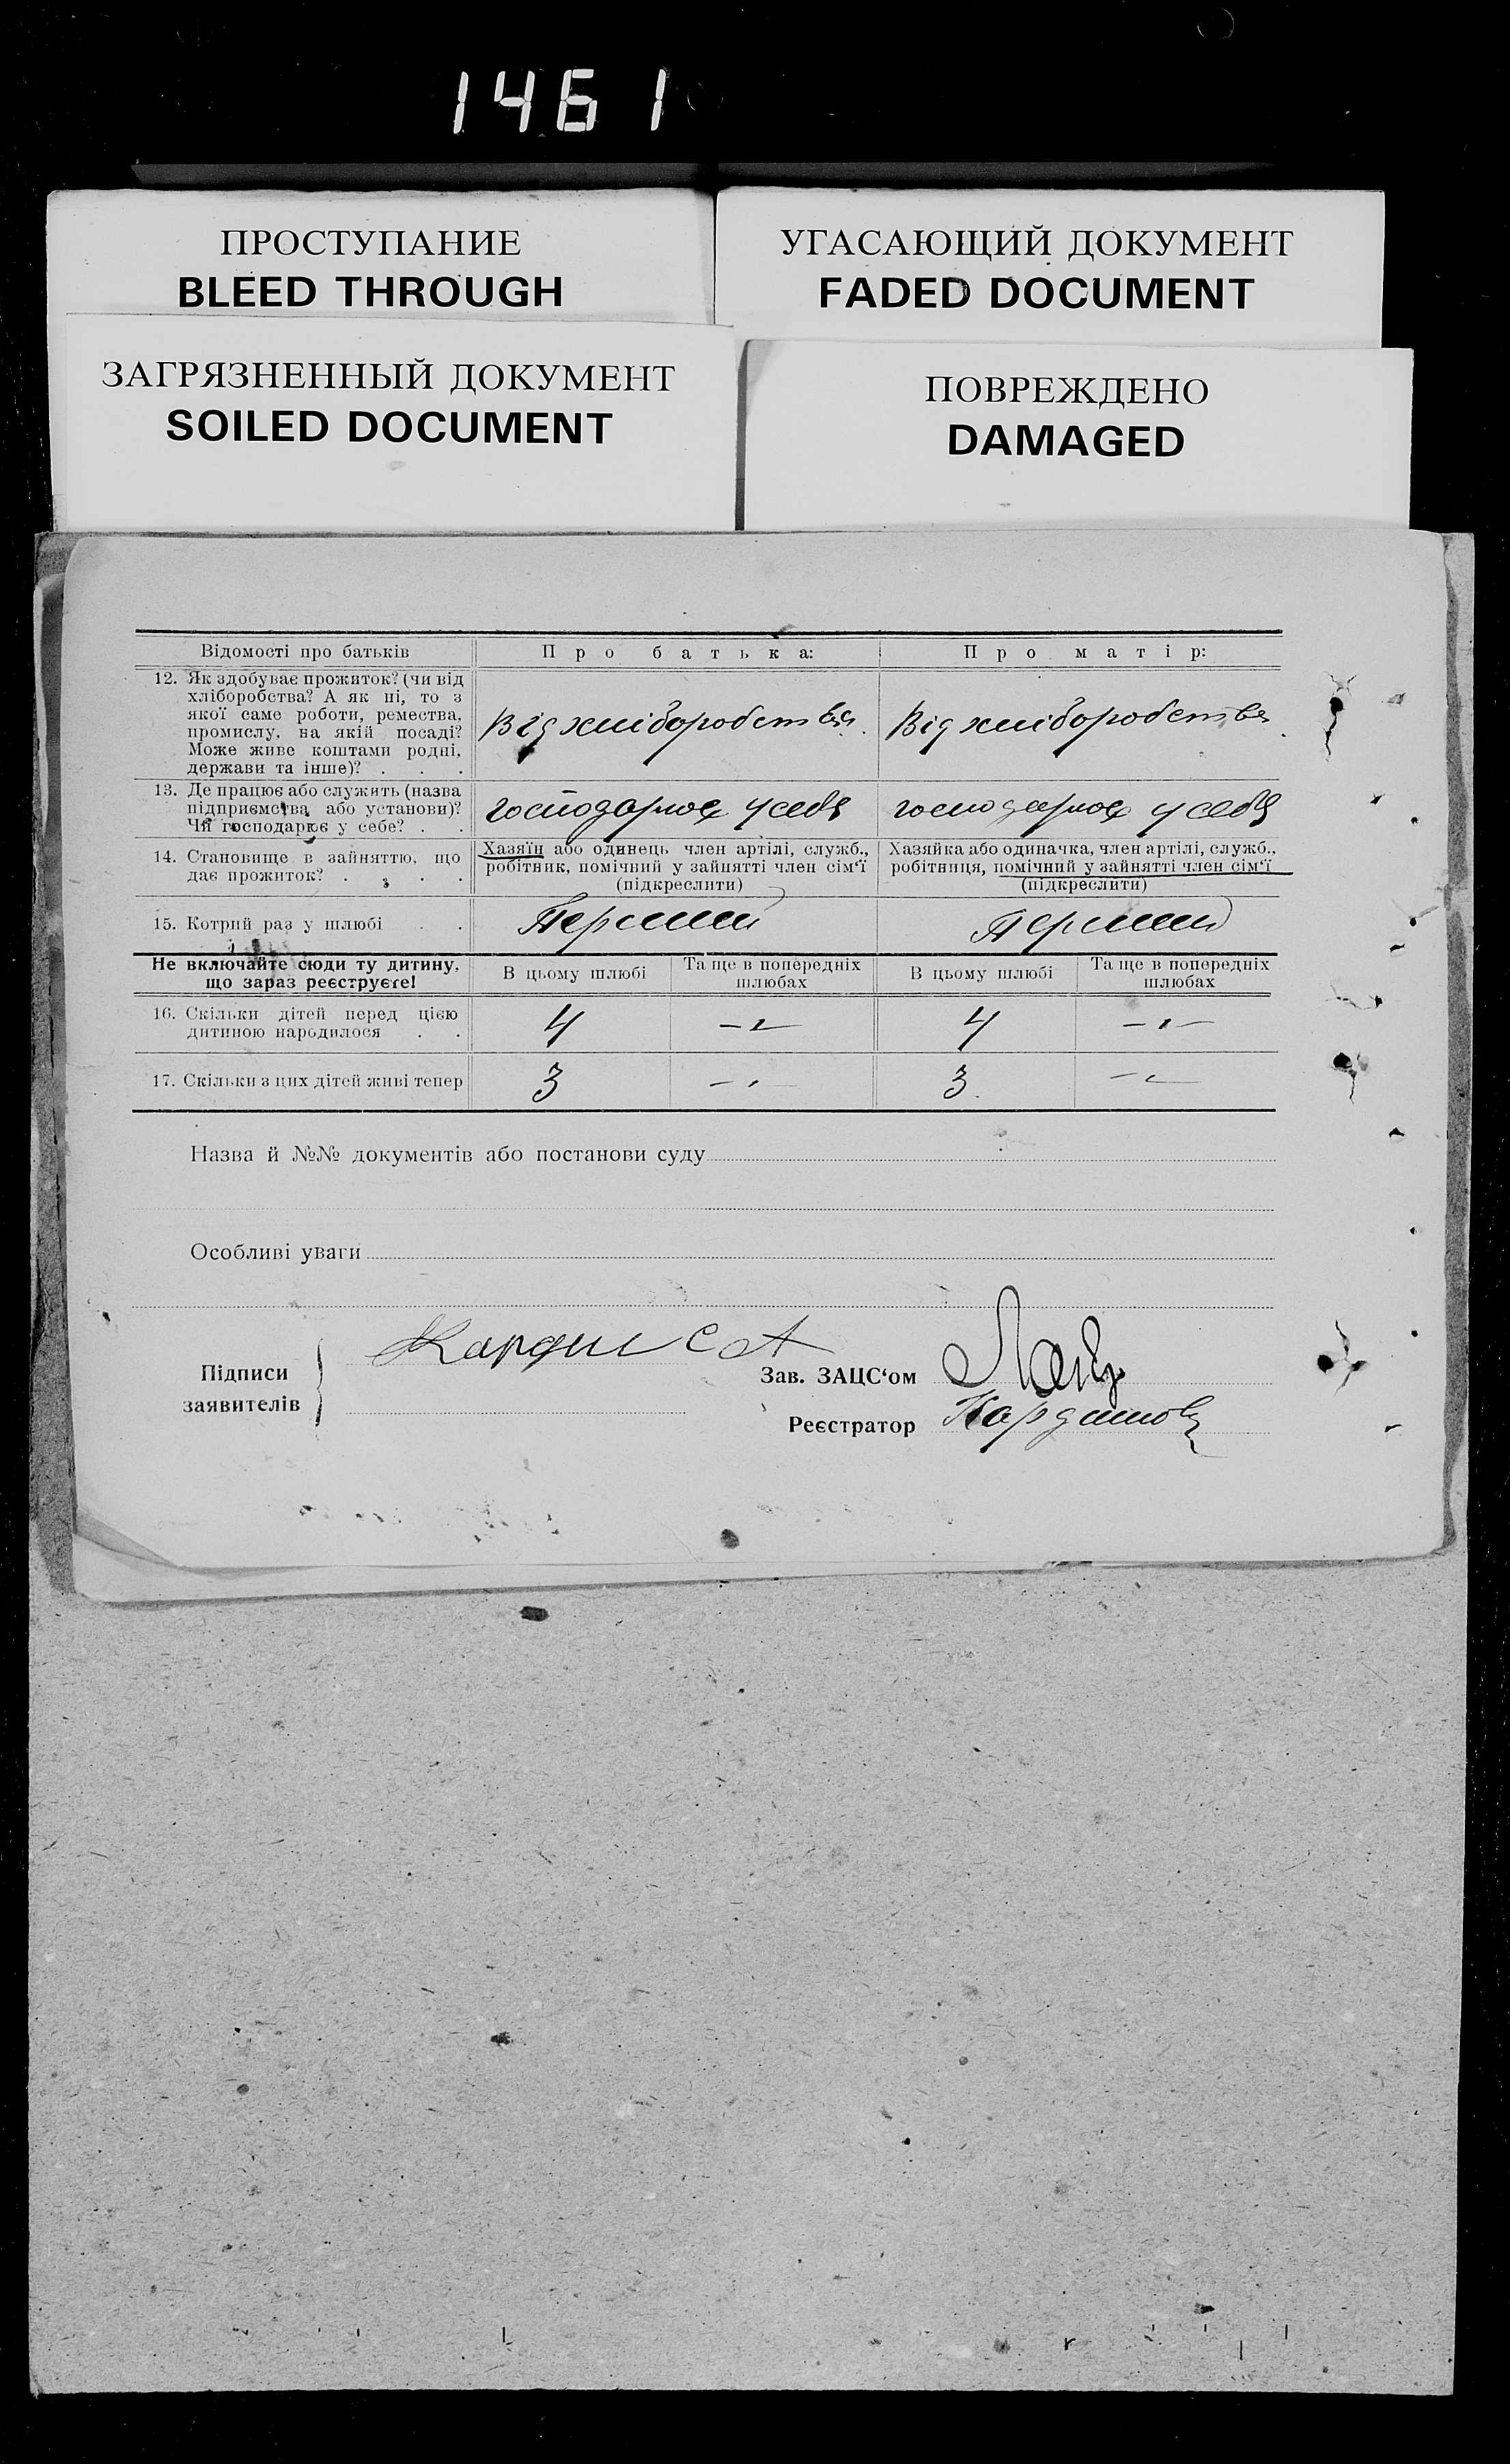 1461
ПРОСТУПАНИЕ
BLEED THROUGH
УГАСАЮЩИЙ ДОКУМЕНТ
FADED DOCUMENT
ЗАГРЯЗНЕННЫЙ ДОКУМЕНТ
SOILED DOCUMENT
ПОВРЕЖДЕНО
DAMAGED
Відомості про батьків
Про батька:
Про матір:
12. Як здобуває прожиток? (чи від
хліборобства? А як ні, то з
якої саме роботи, ремества,
промислу, на якій посаді?
Може живе коштами родні,
держави та інше)? . . .
Від хліборобства
Від хліборобства
13. Де працює або служить (назва
підприємства або установи)?
Чи господарює у себе? . .
господарює у себе
господарює у себе
14. Становище в зайняттю, що
дає прожиток? . . . .
Хазяїн або одинець член артілі, служб.,
робітник, помічний у зайнятті член сім'ї
(підкреслити)
Хазяйка або одиначка, член артілі, служб.,
робітниця, помічний у зайнятті член сім'ї
(підкреслити)
15. Котрий раз у шлюбі . .
Перший
Перший
Не включайте сюди ту дитину,
що зараз реєструєте!
В цьому шлюбі
Та ще в попередніх
шлюбах
В цьому шлюбі
Та ще в попередніх
шлюбах
16. Скільки дітей перед цією
дитиною народилося . .
4
4
17. Скільки з цих дітей живі тепер
3
3
Назва й №№ документів або постанови суду
Особливі уваги
Підписи
заявителів
Зав. ЗАЦС'ом
Реєстратор